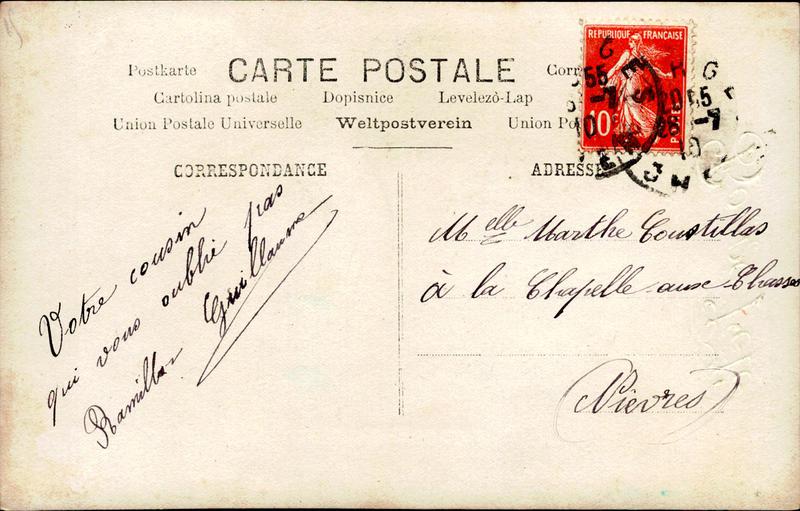 REPUBLIQUE FRANÇAISE
10c
POSTES
Postkarte CARTE POSTALE Corr
Cartolina postale Dopisnice Levelezò-Lap
Union Postale Universelle Weltpostverein Union Po
CORRESPONDANCE
ADRESSE
Votre cousin
qui vous oublie pas
Guillaume
Melle Marthe Coustillas
à la Chapelle aux Chasses
(Nièvres)